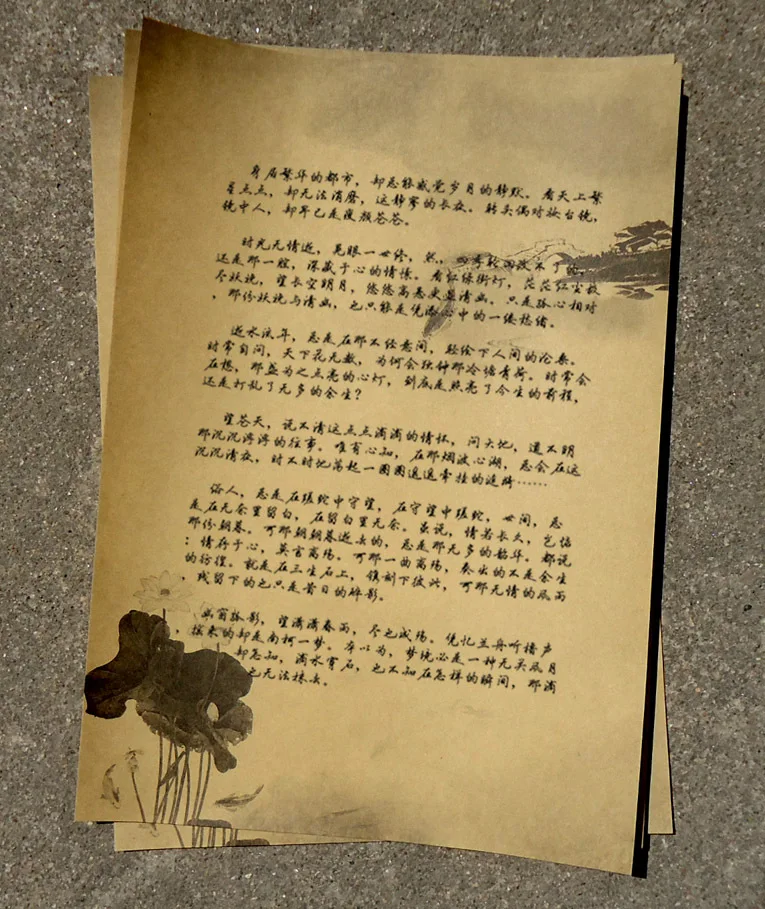 身居繁华的都市，却总能感觉岁月的静默。看天上繁
星点点，却无法消磨，这静寥的长夜。转头偶对妆台镜，
镜中人，却早已是疲颜苍苍。
时光无情逝，晃眼一世终，然，四季轮回改不了的，
还是那一腔，深藏于心的情愫。看红绿街灯，茫茫红尘数
尽妖娆，望长空明月，悠悠高悬更显清幽。只是孤心相对
，那份妖娆与清幽，也只能是凭添心中的一缕愁绪。
逝水流年，总是在那不经意间，轻绘下人间的沧桑。
时常自问，天下花无数，为何会独钟那冷塘青荷。时常会
在想，那盏为之点亮的心灯，到底是照亮了今生的前程，
还是打乱了无多的余生？
望苍天，说不清这点点滴滴的情怀，问大地，道不明
那沉沉浮浮的往事。唯有心知，在那烟波心湖，总会在这
沉沉清夜，时不时地荡起一圈圈退退牵挂的涟漪……
俗人，总是在蹉跎中守望，在守望中蹉跎，世间，总
是在无奈里留白，在留白里无奈。虽说，情若长久，岂惦
那份朝暮。可那朝朝暮逝去的，总是那无多的韶华。都说
：情存于心，莫言离殇。可那一曲离殇，奏出的不是余生
的彷徨。就是在三生石上，镌刻下彼此，可那无情的风雨
，残留下的也只是昔日的碎影。
幽窗孤影，望满满春雨，尽也成殇。凭忆兰舟听橹声
，摇来的却是南柯一梦。本以为，梦境必是一种无关风月
却怎知，滴水穿石，也不知在怎样的瞬间，那滴
也无法抹去。